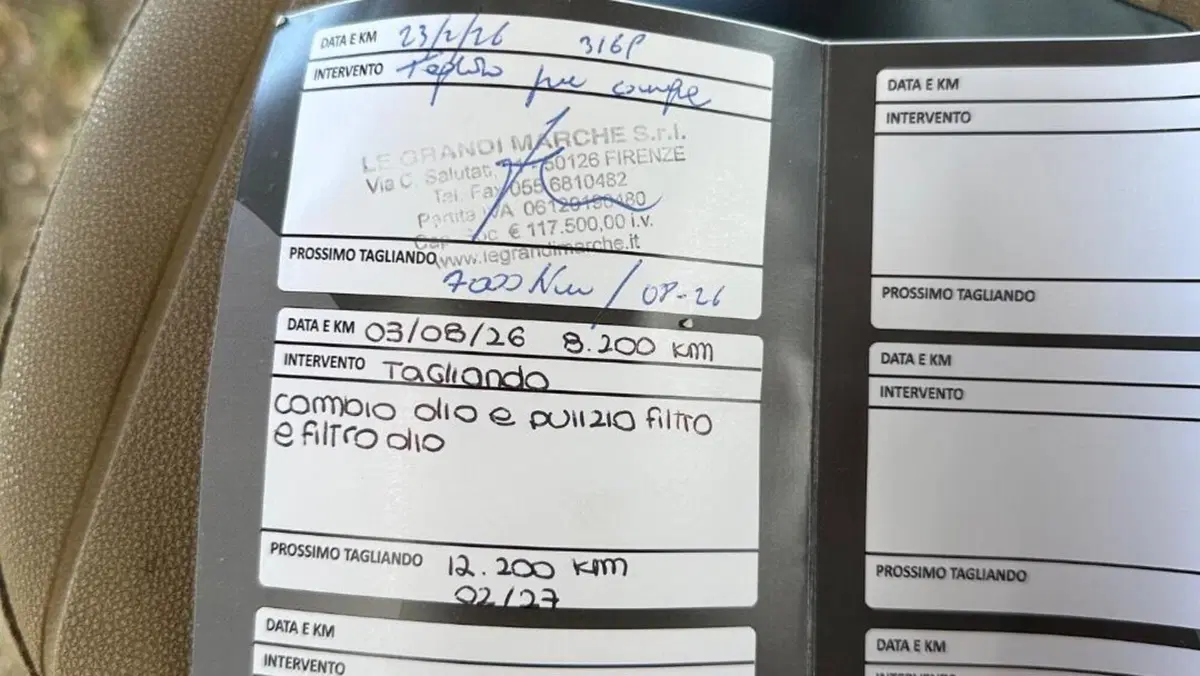 DATA E KM 23/2/26 3168
INTERVENTO Tagliando per
LE GRANDI MARCHE S.r.l.
Via C. Salutati, 50126 FIRENZE
Tel. Fax 055 6810482
Partita IVA 06120190480
Cap. Soc. € 117.500,00 i.v.
www.legrandimarche.it
PROSSIMO TAGLIANDO
7000 / 08-26
DATA E KM 03/08/26 8.200 km
INTERVENTO Tagliando
cambio olio e pulizia filtro
e filtro olio
PROSSIMO TAGLIANDO 12.200 km
02/27
DATA E KM
INTERVENTO
DATA E KM
INTERVENTO
PROSSIMO TAGLIANDO
DATA E KM
INTERVENTO
PROSSIMO TAGLIANDO
DATA E KM
INTERVENTO